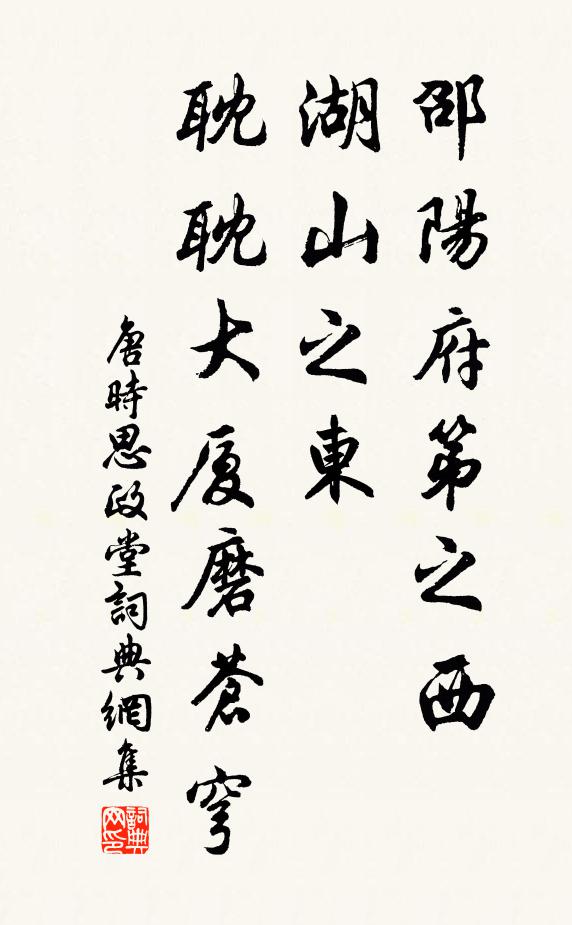 邵陽府第之西
湖山之東
耽耽大厦磨蒼穹
唐時思政堂詞典網集
詞典网印